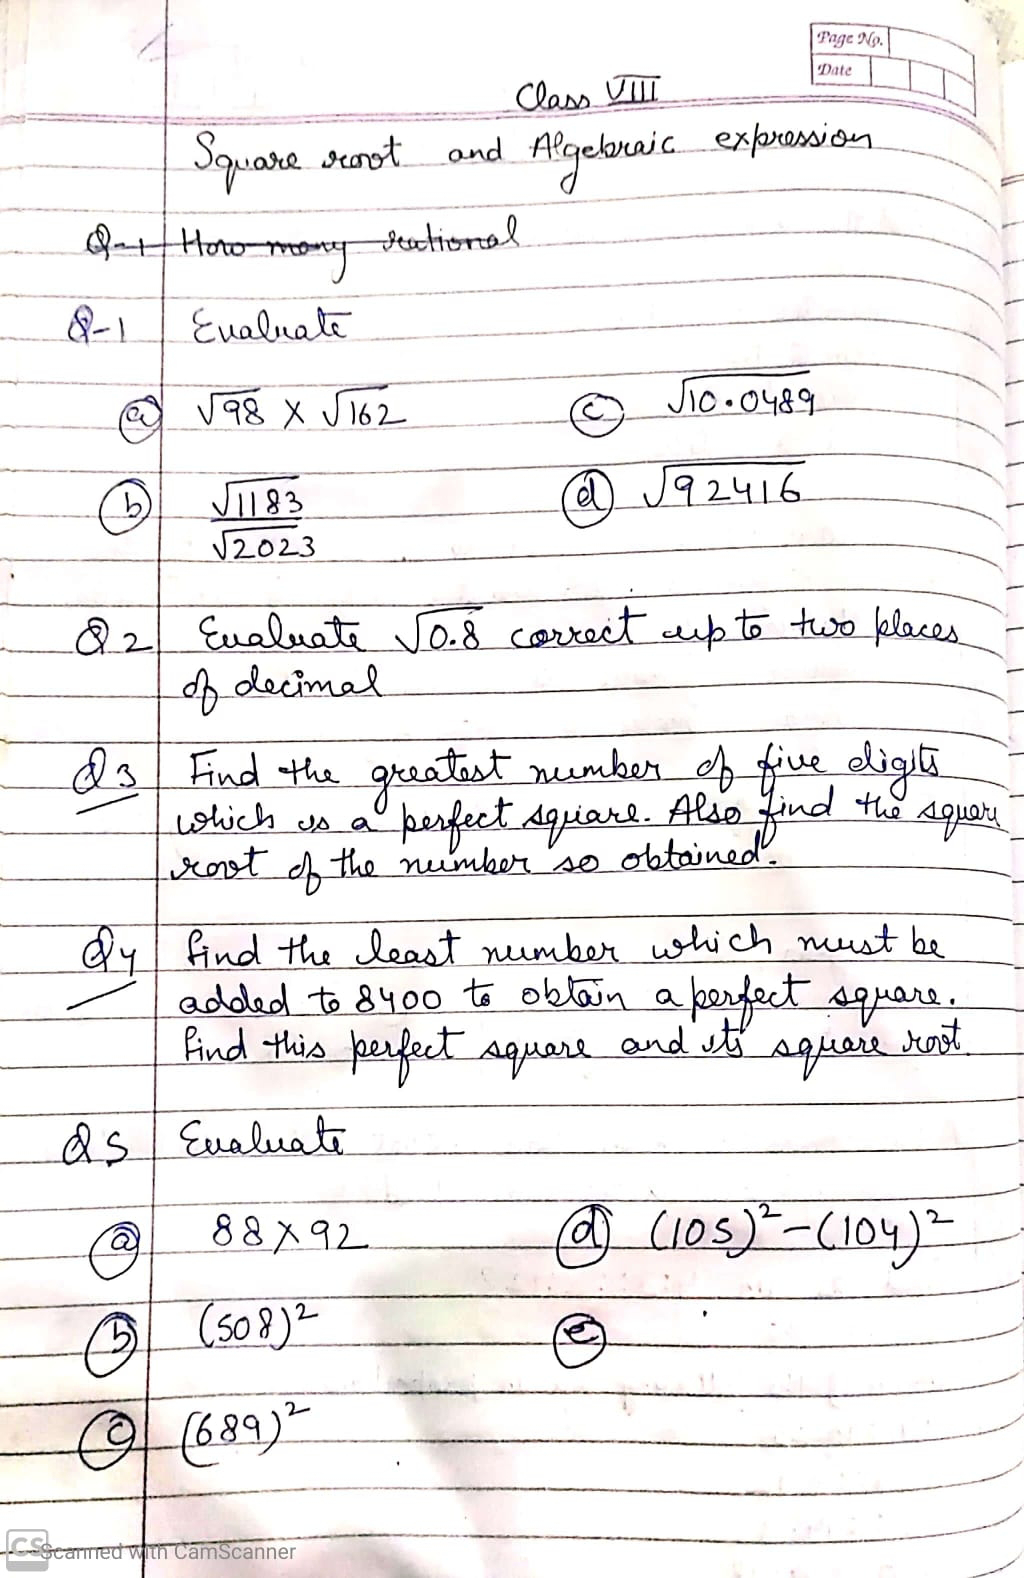 Page No.
Date
Class VIII
Square root and Algebraic expression
Q-1 How many rational
Q-1 Evaluate
(a) √98 × √162 (c) √10.0489
(b) √1183 / √2023 (d) √92416
Q2 Evaluate √0.8 correct up to two places
of decimal
Q3 Find the greatest number of five digits
which is a perfect square. Also find the square
root of the number so obtained.
Q4 find the least number which must be
added to 8400 to obtain a perfect square.
find this perfect square and its square root.
Q5 Evaluate
(a) 88×92 (d) (105)²-(104)²
(b) (508)² (e)
(c) (689)²
CS Scanned with CamScanner